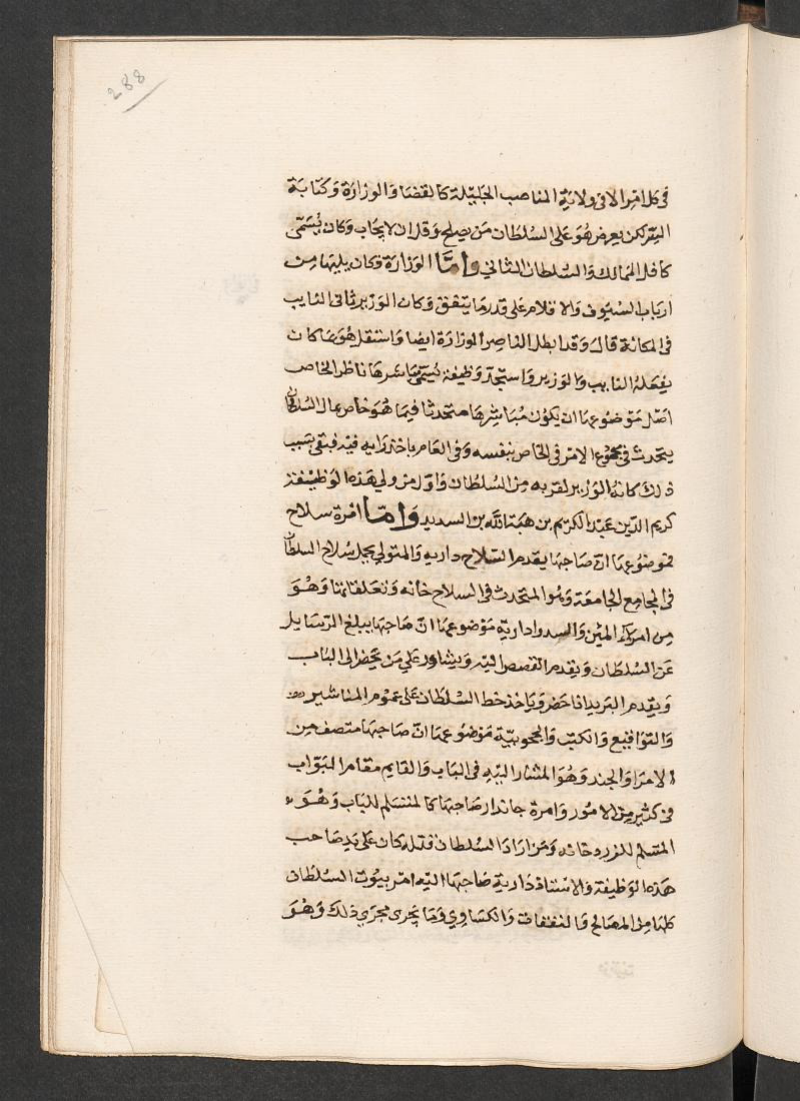 288
في كل امر الا في ولاية المناصب الجليلة كالقضا والوزارة وكتابة
السر لكن يعرض هو على السلطان من يصلح وقل ان لا يجاب وكان يُسمّى
كافل الممالك والسلطان الثاني واما الوزارة فكان يليها من
ارباب السيوف والاقلام على قدر ما يتفق وكان الوزير ثانى النايب
في المكانة قال وقد ابطل الناصر الوزارة ايضا واستقل هو بما كان
يفعله النايب والوزير واستجدّ وظيفة يسمى مباشرها ناظر الخاص
اصل موضوعها ان يكون مباشرها متحدثا فيما هو خاص بمال السلطان
يتحدث في مجموع الامر في الخاص بنفسه وفي العام باخذ رايه فيه فبقي بسبب
ذلك كانه الوزير لقربه من السلطان واول من ولي هذه الوظيفة
كريم الدين عبد الكريم بن هبة الله بن السديد واما امرة سلاح
فموضوعها انّ صاحبها يقدم السلاح داريه والمتولي بحمل سلاح السلطان
في المجامع الجامعة وهو المتحدث في السلاح خانه وتعلقاتها وهو
من امراء المئين والدواداريّة موضوعها انّ صاحبها يبلغ الرسايل
عن السلطان ويقدم القصص اليه ويشاور على من يحضر الى الباب
ويقدم البريد اذا حضر وياخذ خط السلطان على عموم المناشير
والتواقيع والكتب والحجوبيّة موضوعها انّ صاحبها متصف من
الامرا والجند وهو المشار اليه في الباب والقايم مقام البواب
في كثير من الامور وامرة جاندار صاحبها كالمتسلم للباب وهو
المتسلم للزردخانه ومن اراد السلطان قتله كان على يد صاحب
هذه الوظيفة والاستادّارية صاحبها اليه امر بيوت السلطان
كلها من المصالح والنفقات والكساوي وما يجرى مجرى ذلك وهو